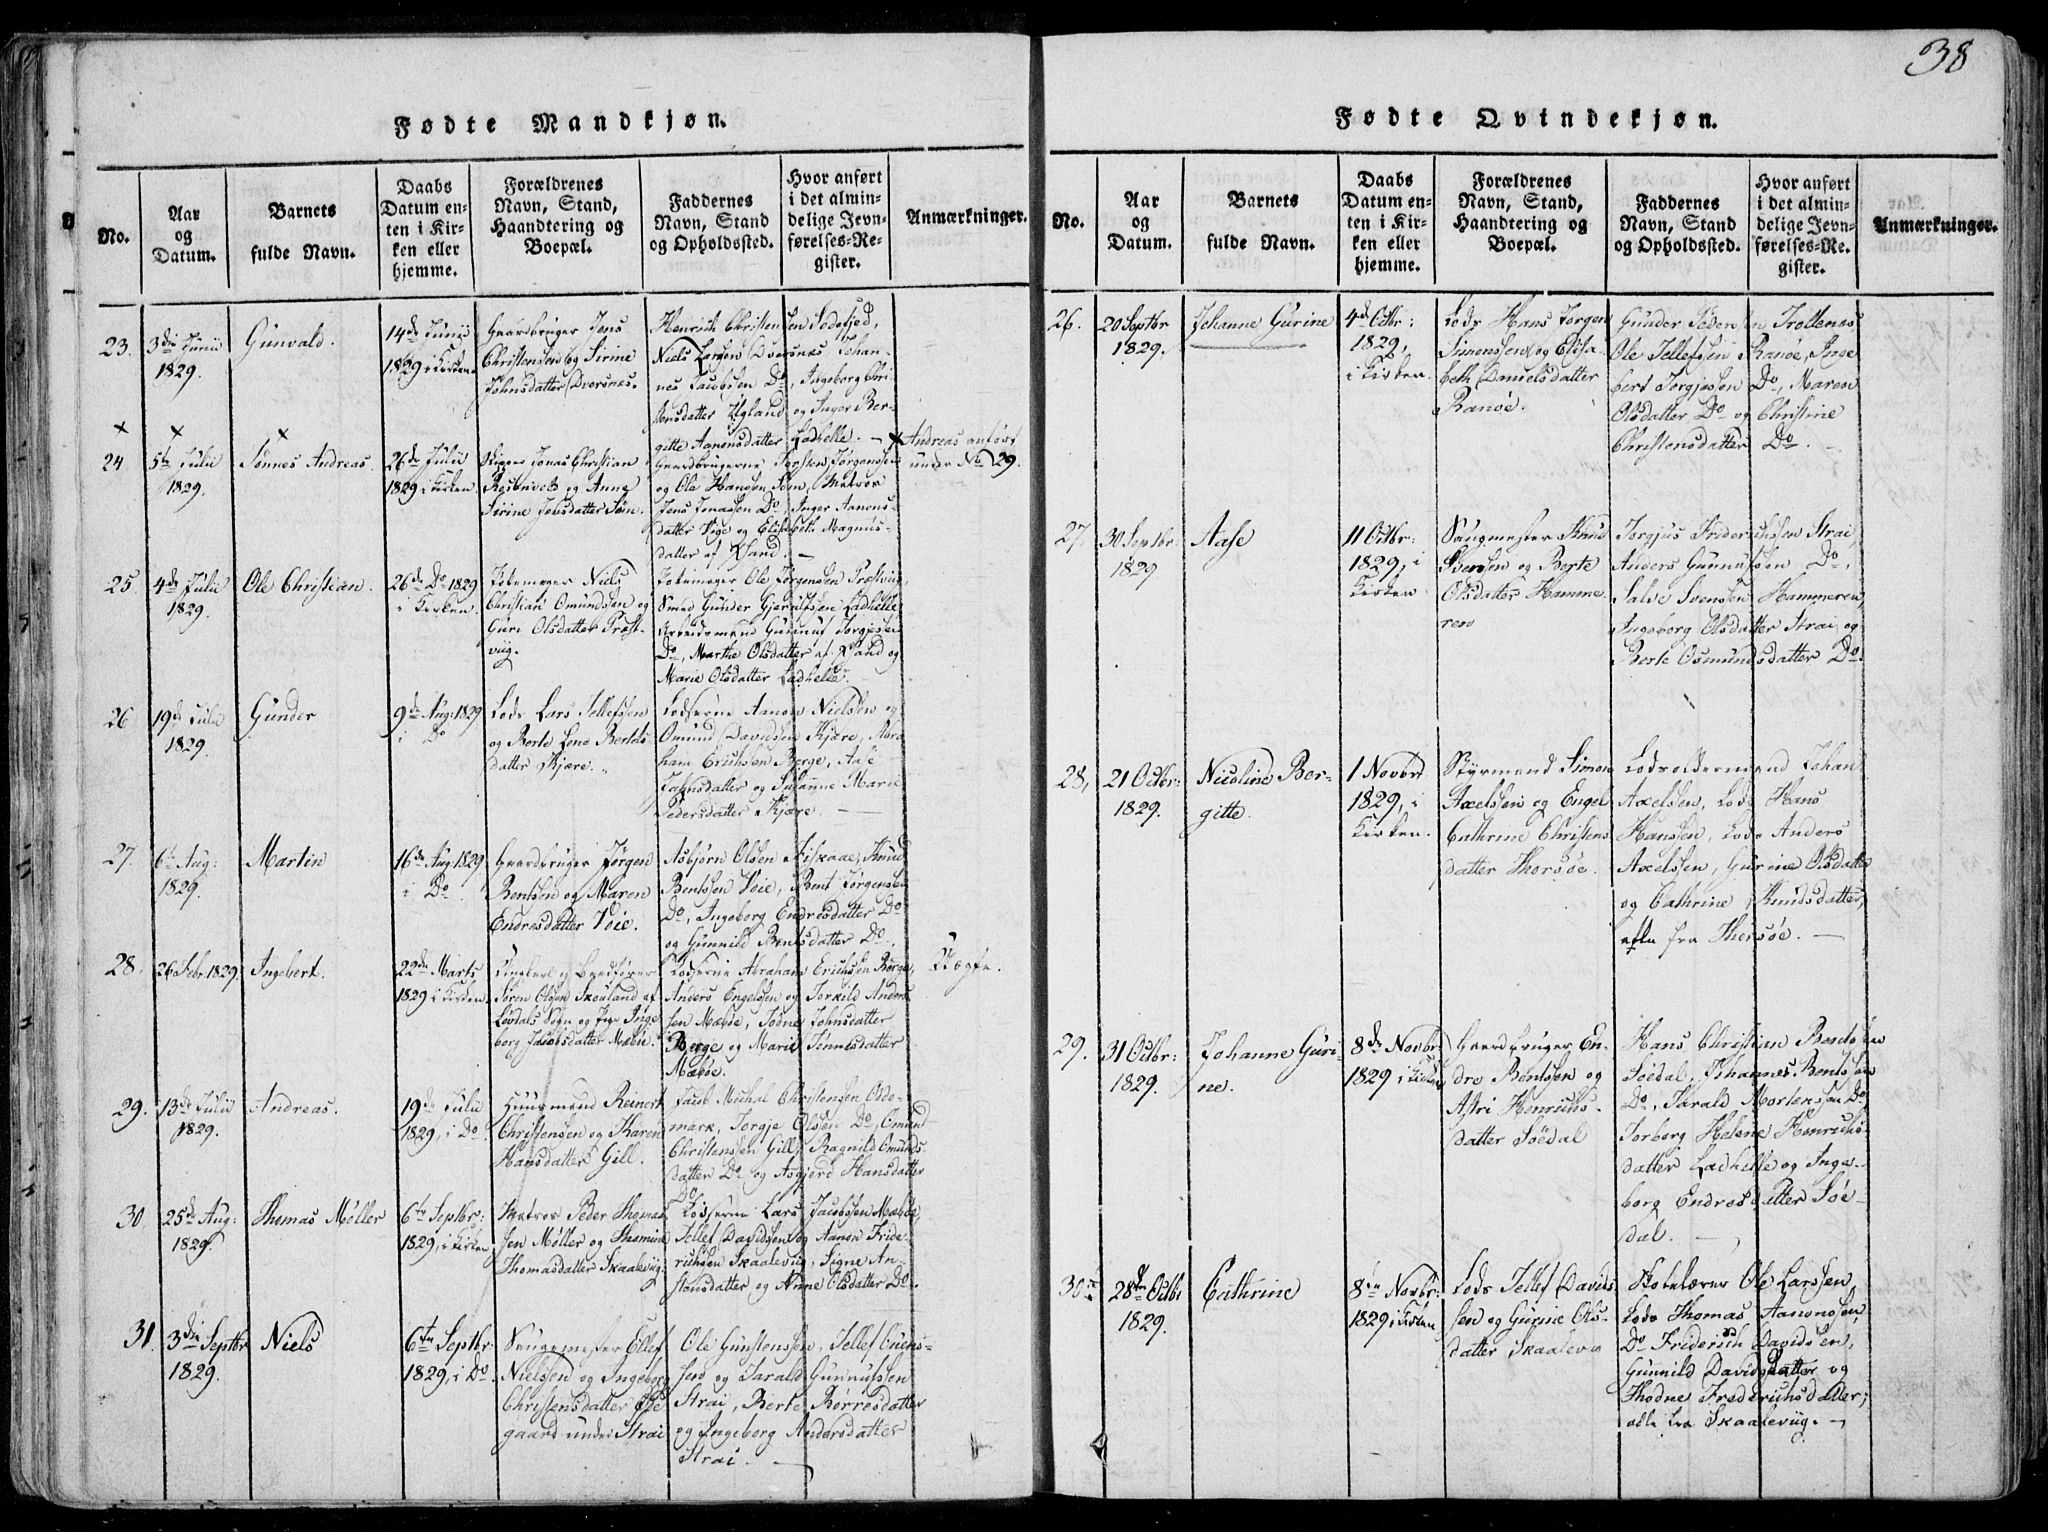 38
Fødte Mandkjøn.
No.
Aar
og
Datum.
Barnets
fulde Navn.
Daabs
Datum en-
ten i Kir-
ken eller
hjemme.
Forældrenes
Navn, Stand,
Haandtering og
Boepæl.
Faddernes
Navn, Stand
og Opholdssted.
Hvor anført
i det almin-
delige Jevn-
førelses-Re-
gister.
Anmærkninger.
23.
3die Junii
1829.
Gunvald.
14de Junii
1829 i Kirken
Gaardbruger Jens
Christensen og Sirine
Johnsdatter Dversnes.
Henrich Christensen Sodefjed,
Niels Larsen Dversnes Johan-
nes Jacobsen Do, Ingeborg Chri-
stensdatter Ugland og Inger Ber-
gitte Aanonsdatter Ladhelle. —
24
5te Julii
1829.
Tønnes Andreas.
26de Julii
1829 i Kirken
Jonas Christian
og Anne
Sirine Jensdatter
Gaardbrugerne Torsten Jørgensen
og Ole Hansen Søm, Matros
Jens Jonassen Do, Inger Aanons-
datter Vige og Elisabeth Magnus-
datter af Xsand. —
Andreas anført
under No 29.
25.
4de Julii
1829.
Ole Christian.
26de Do 1829
i Kirken
Niels
Christian Omundsen og
Guri Olsdatter Præst-
viig.
Ole Jørgensen Præstviig,
Smed Gunder Gjerulfsen Ladhelle
Arbeidsmand Gunnuf Torgjesen
Do, Marthe Olsdatter af Xsand og
Marie Olsdatter Ladhelle.
26
19de Julii
1829.
Gunder
9de Aug: 1829
i Do
Lods Lars Tellefsen
og Berte Lene Bertels-
datter Kjære.
Lodserne Aanon Nielsen og
Omund Davidsen Kjære, Abra-
ham Erichsen Berge, Aase
datter og Susanne Marie
Pedersdatter Kjære. —
27.
6te Aug:
1829.
Martin
16de Aug: 1829
i Do
Gaardbruger Jørgen
Bentsen og Maren
Endresdatter Voie.
Asbjørn Olsen Fiskaae, Knud
Bentsen Voie, Bent Jørgensen
Do, Ingeborg Endresdatter Do
og Gunnild Bentsdatter Do.
28.
26 Febr 1829
Ingebert.
22de Marts
1829 i Kirken
Søren Olsen Skouland af
Løvdals Sogn og Pige Inge
borg Jacobsdatter Mæbøe.
Lodserne Abraham Erichsen Berge,
Anders Engelsen og Torkild Anders-
sen Mæbøe, Todne Johnsdatter
Berge og Marie Tønnesdatter
Mæbøe.
Uægte.
29.
13de Julii
1829.
Andreas.
19de Julii
1829, i Do
Huusmand Reinert
Christensen og Karen
Hansdatter Gill.
Jacob Michal Christensen Odde-
mark, Torgje Olsen Do, Omund
Christensen Gill, Ragnild Omunds-
datter Do og Asgjerd Hansdatter
Do.
30.
25de Aug:
1829.
Thomas Møller
6te Septbr:
1829, i Kirken
Matros Peder Thomas
sen Møller og Thomine
Thomasdatter Skaalevig.
Lodserne Lars Jacobsen Mæbøe,
Tellef Davidsen og Aanon Fride-
richsen Skaalevug, Signe An-
stensdatter og Anne Olsdatter Do.
31.
3die Septbr
1829.
Niels
6te Septbr:
1829, i Do
Saugmester Ellef
Nielsen og Ingeborg
Christensdatter
gaard under Strai
Ole Gunstensen, Tellef Guens-
sen og Tarald Gunnufsen
Strai, Berte Børresdatter
og Ingeborg Andersdatter
Strai. —
Fødte Qvindekjøn.
No.
Aar
og
Datum.
Barnets
fulde Navn.
Daabs
Datum en-
ten i Kir-
ken eller
hjemme.
Forældrenes
Navn, Stand,
Haandtering og
Boepæl.
Faddernes
Navn, Stand
og Opholdssted.
Hvor anført
i det almin-
delige Jevn-
førelses-Re-
gister.
Anmærkninger.
26.
20 Septbr
1829.
Johanne Gurine
4de Octbr:
1829,
i Kirken.
Lods Hans Jørgen
Simonssen og Elisa-
beth Danielsdatter
Ranøe.
Gunder Pedersen Trollenæs
Ole Tellefsen Ranøe, Inge
bert Torgjesen Do, Maren
Olsdatter Do og Christine
Christensdatter Do. —
27.
30 Septbr:
1829
Aase
11 Octbr:
1829, i
Kirken
Saugmester Knud
Svensen og Berte
Olsdatter Hamme-
ren
Torgjus Friderichssen Strai,
Anders Gunnufsen Do,
Salve Svensen Hammeren,
Ingeborg Olsdatter Strai og
Berte Osmundsdatter Do.
28.
21 Octbr:
1829.
Nicoline Ber-
gitte.
1 Novbr
1829, i
Kirken.
Styrmand Simon
Axelssen og Engel
Cathrine Christens
datter Thorsøe.
Lodsoldermand Johan
Axelsen, Lods Hans
Hanssen, Lods Anders
Axelssen, Gurine Olsdatter
og Cathrine Knudsdatter,
alle fra Thorsøe. —
29.
31 Octbr:
1829.
Johanne Guri-
ne.
8de Novbr:
1829 i Kirken
Gaardbruger En-
dre Bentssen og
Astri Henrichs-
datter Søedal
Hans Christian Bentssen
Søedal, Johannes Bentssen
Do, Tarald Mortenssen Do,
Torborg Helene Henrichs-
datter Ladhelle og Inge-
borg Endresdatter Søe-
dal. —
30te
28de Octbr
1829.
Cathrine
8de Novbr:
1829 i Kirken
Lods Tellef Davids
sen og Gurine Ols-
datter Skaalevig
Skolelærer Ole Larssen,
Lods Thomas Aanonssen,
Do Friderich Davidsen,
Gunnild Davidsdatter og
Thodne Frederichsdatter,
alle fra Skaalevüg. —